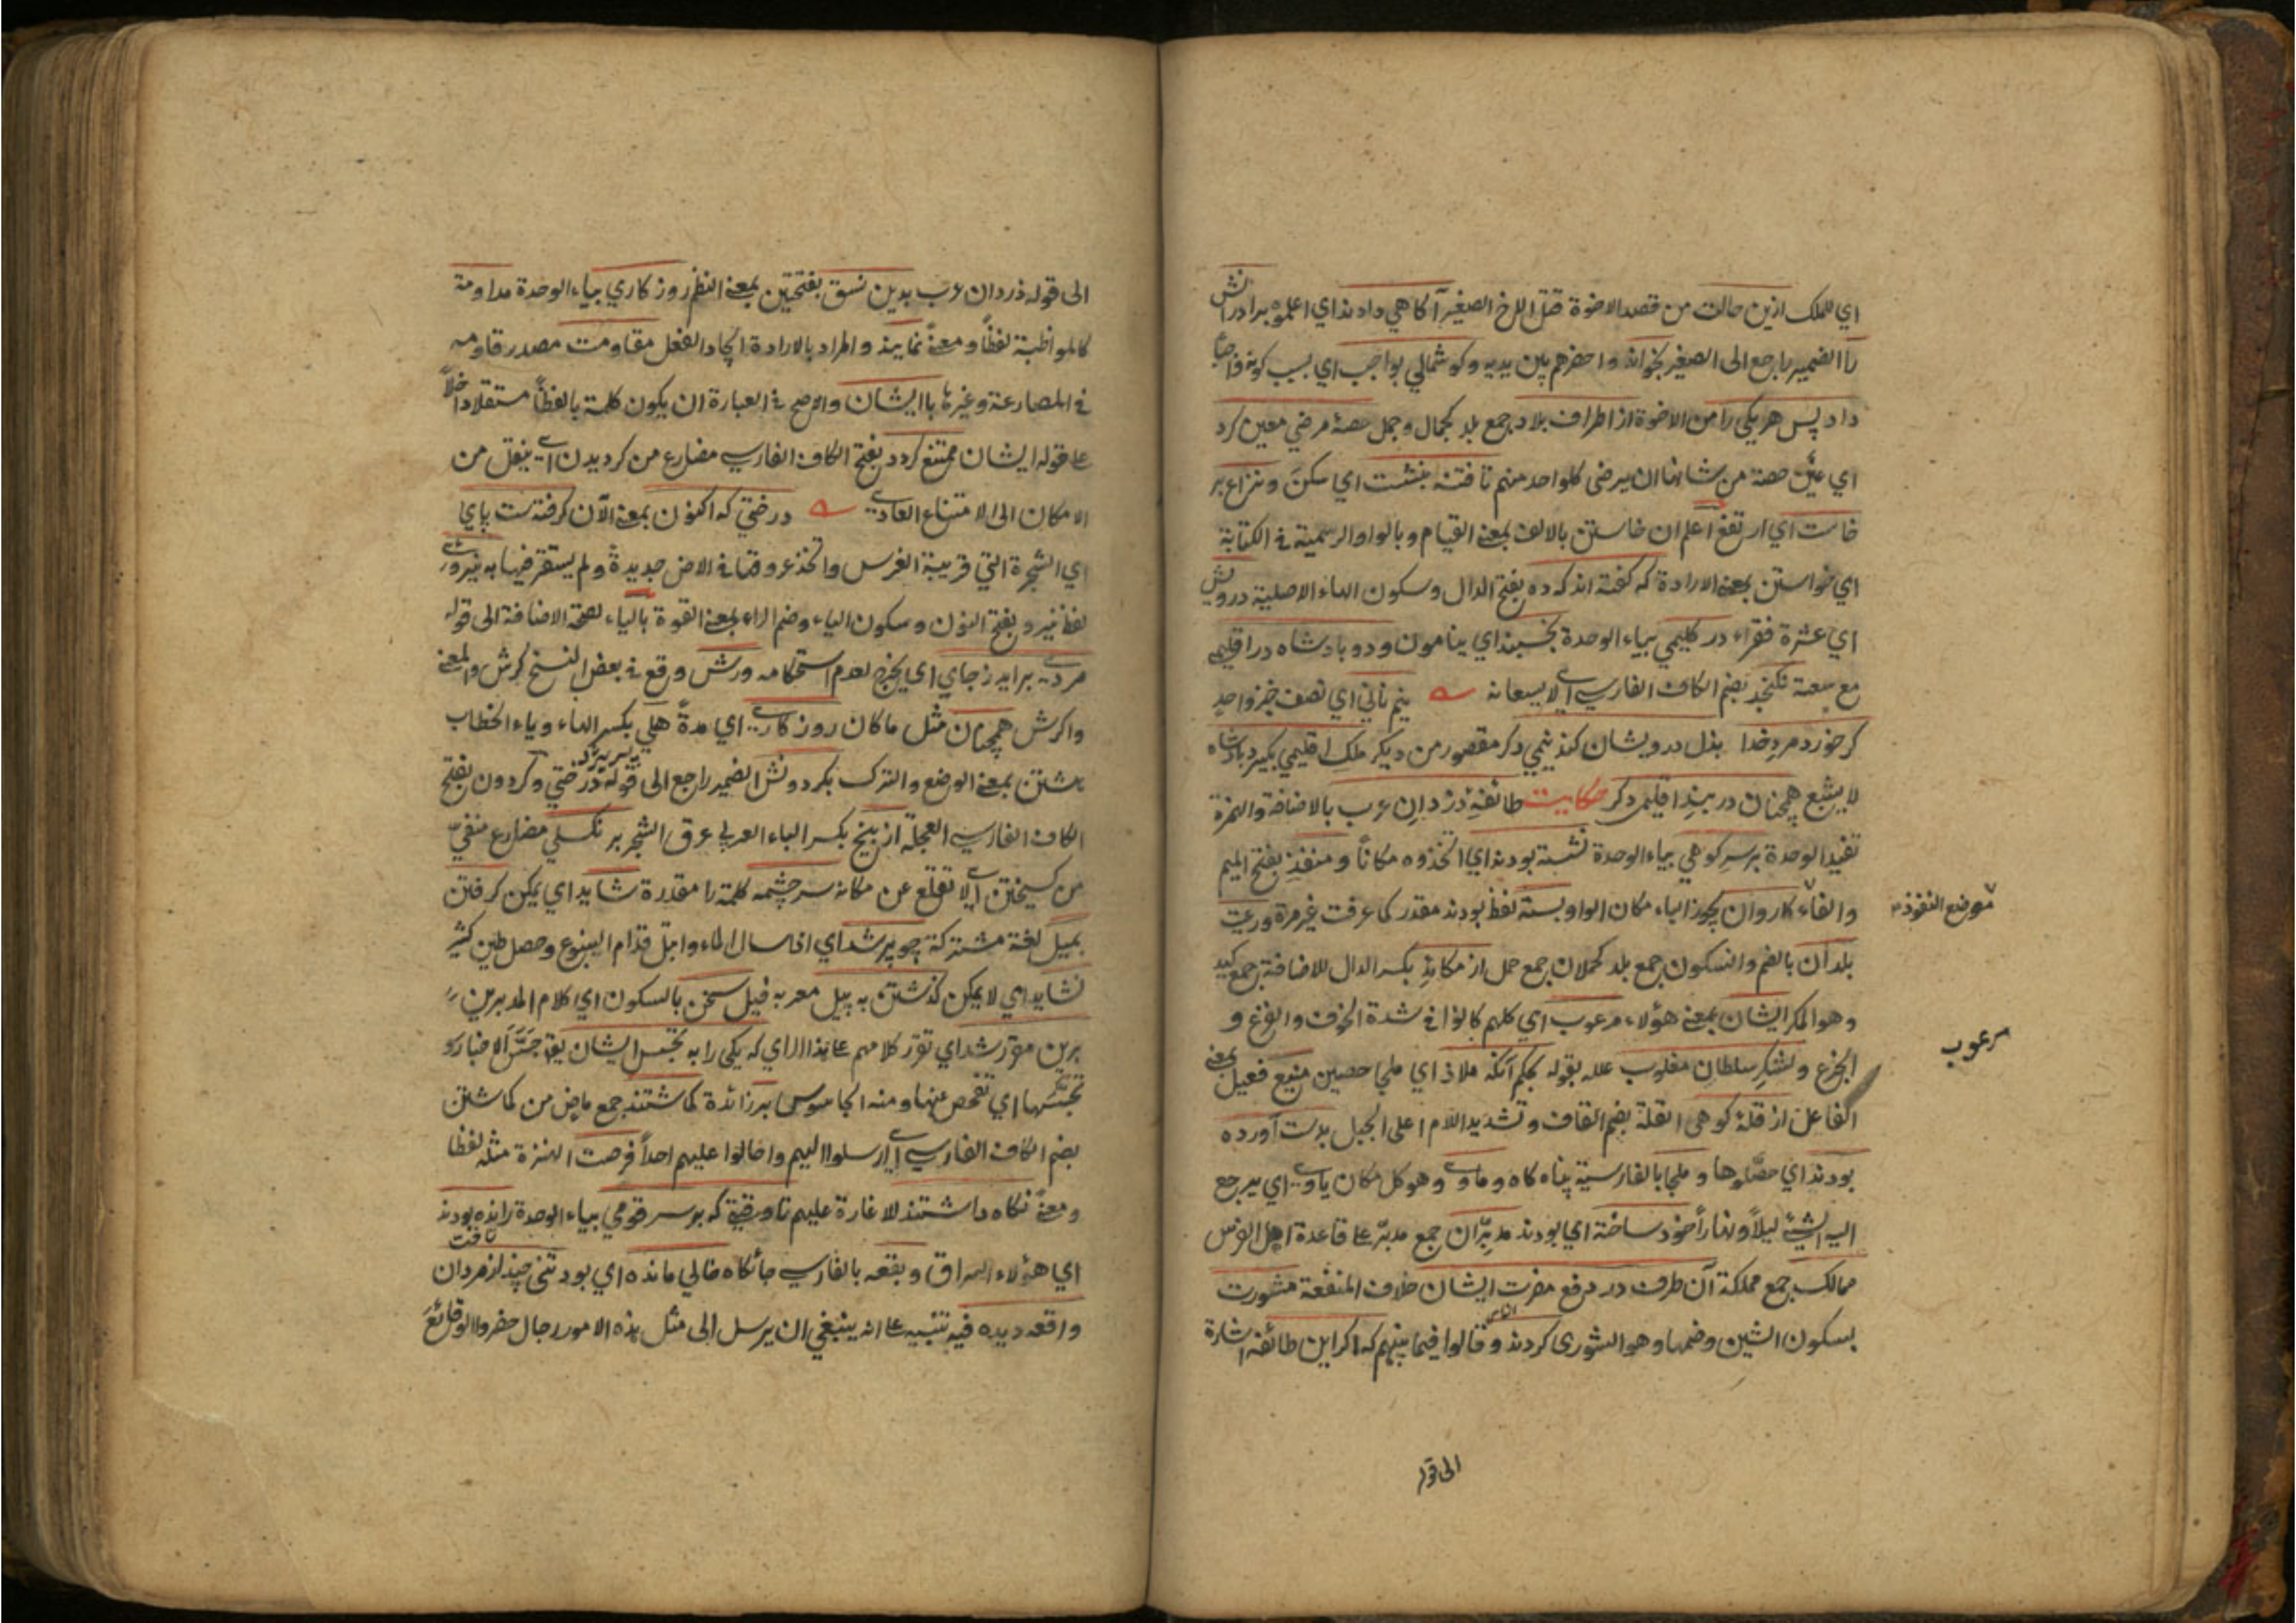 اي للملك ازين حالت من قصد الاخوة قتل اللاخ الصغير آكاهي دادند اي اعلموه برادرانش
را الضمير راجع الى الصغير بخواند واحضرهم بين يديه وكوشمالي بواجب اي بسبب كونه واجبا
داد پس هر يكي را من الاخوة از اطراف بلاد جمع بلد كجمال وجمل حصۀ مرضي معين كرد
اي عيّن حصة من شانها ان يرضى كل واحد منهم تا فتنه بنشست اي سكنَ ونزاع بر
خاست اي ارتفع اعلم ان خاستن بالالف بمعنى القيام وبالواو الرسمية في الكتابة
اي خواستن بمعنى الارادة كه كفته اند كه ده بفتح الدال وسكون الهاء الاصلية درويش
اي عشرة فقراء در كليمي بياء الوحدة بخسبند اي ينامون ودو پادشاه در اقليمي
مع سعته نكنجد بضم الكاف الفارسي اي لا يسعانه نيم ناني اي نصف خبز واحد
كر خورد مردِ خدا بذل درويشان كند نيمي دكر مقصور من ديكر ملك اقليمي بكيرد پادشاه
لا يشبع همچنان در بندِ اقليمى دكر حكايت طائفۀ دزدانِ عرب بالاضافة والهمزة
تفيد الوحدة بر سرِ كوهي بياء الوحدة نشسته بودند اي اتخذوه مكاناً ومنفذِ بفتح الميم
والفاء كاروان يجوز الباء مكان الواو بسته لفظ بودند مقدر كما عرفت غير مرة ورعيت
موضع النفوذ
بلدان بالضم والسكون جمع بلد كحملان جمع حمل از مكائدِ بكسر الدال للاضافة جمع كيد
وهو المكر ايشان بمعنى هؤلاء مرعوب اي كلهم كانوا في شدة الخوف والفزع و
مرعوب
الجزع ولشكرِ سلطان مغلوب علله بقوله بحكم آنكه ملاذى اي ملجا حصين منيع فعيل بمعنى
الفاعل از قلۀ كوهى القلة بضم القاف وتشديد اللام اعلى الجبل بدست آورده
بودند اي حصّلوها وملجا بالفارسية پناه كاه وماوى وهو كل مكان ياوى اي يرجع
اليه الشيئ ليلاً ونهاراً خود ساخته اي بودند مدبّران جمع مدبّر على قاعدة اهل الفرس
ممالك جمع مملكة آن طرف در دفع مضرت ايشان خلاف المنفعة مشورت
بسكون الشين وضمها وهو الشورى كردند وقالوا فيما بينهم كه اكر اين طائفه اشارة
الى قوله
الى قوله دزدان عرب بدين نسق بفتحتين بمعنى النظم روزكاري بياء الوحدة مداومة
كالمواظبة لفظاً ومعنىً نمايند والمراد بالارادة ايجاد الفعل مقاومت مصدر قاومه
في المصارعة وغيرها با ايشان والاصح في العبارة ان يكون كلمة با لفظاً مستقلا داخلاً
على قوله ايشان ممتنع كردد بفتح الكاف الفارسي مضارع من كرديدن اي ينقل من
الامكان الى الامتناع العادي درختي كه اكنون بمعنى الآن كرفتست پاي
اي الشجرة التي قريبة الغرس واتخذ عروقها في الارض جديدة ولم يستقر فيها به نيروى
لفظ نيرو بفتح النون وسكون الياء وضم الراء بمعنى القوة بالياء لصحة الاضافة الى قوله
مردى برايد زجاي اي يخرج لعدم استحكامه ورش وقع في بعض النسخ كرش والمعنى
واكرش همچنان مثل ما كان روزكارى اي مدةً هلي بكسر الهاء وياء الخطاب
هشتن بمعنى الوضع والترك بكردونش الضمير راجع الى قوله درختي وكردون بفتح
الكاف الفارسي العجلة از بيخ بكسر الباء العربي عرق الشجر بر نكسلي مضارع منفيّ
من كسيختن اي لا تقلع عن مكانه سرچشمه كلمة را مقدرة شايد اي يمكن كرفتن
بميل لغة مشتركة چو پر شد اي اذا سال الماء وابتل قدام الينبوع وحصل طين كثير
نشايد اي لا يمكن كذشتن به پيل معربه فيل سخن بالسكون اي كلام المدبرين
برين مقرّر شد اي تقرّر كلامهم على هذا الراي كه يكى را به تجسس ايشان يقال جَسَّ الاخبار و
تجسّسها اي تفحص عنها ومنه الجاسوس بر زائدة كماشتند جمع ماضٍ من كماشتن
بضم الكاف الفارسي اي ارسلوا اليهم واحالوا عليهم احداً فرصت النهزة مثله لفظا
ومعنىً نكاه داشتند للاغارة عليهم تا وقتي كه بر سر قومي بياء الوحدة رانده بودند
اي هؤلاء السراق وبقعه بالفارسي جائكاه خالي مانده اي بود تنى چند از مردان
واقعه ديده فيه تنبيه على انه ينبغي ان يرسل الى مثل هذه الامور رجال حضروا الوقائعَ